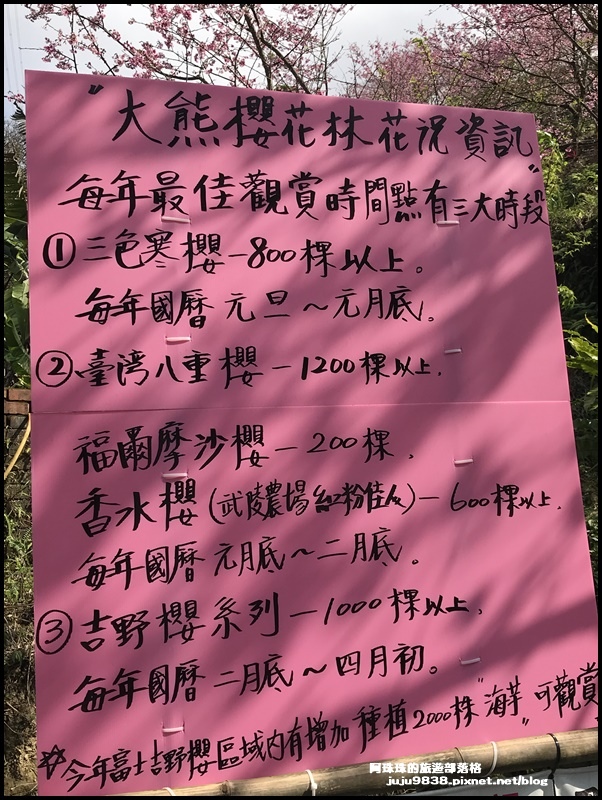 "大熊櫻花林花況資訊"
每年最佳觀賞時間點有三大時段
①三色寒櫻－800棵以上。
每年國曆元旦～元月底。
②臺灣八重櫻－1200棵以上.
福爾摩沙櫻－200棵.
香水櫻(武陵農場紅粉佳人)－600棵以上.
每年國曆元月底～二月底。
③吉野櫻系列－1000棵以上.
每年國曆二月底～四月初。
☆今年富士吉野櫻區域內有增加種植2000株"海芋"可觀賞
阿珠珠的旅遊部落格
juju9838.pixnet.net/blog